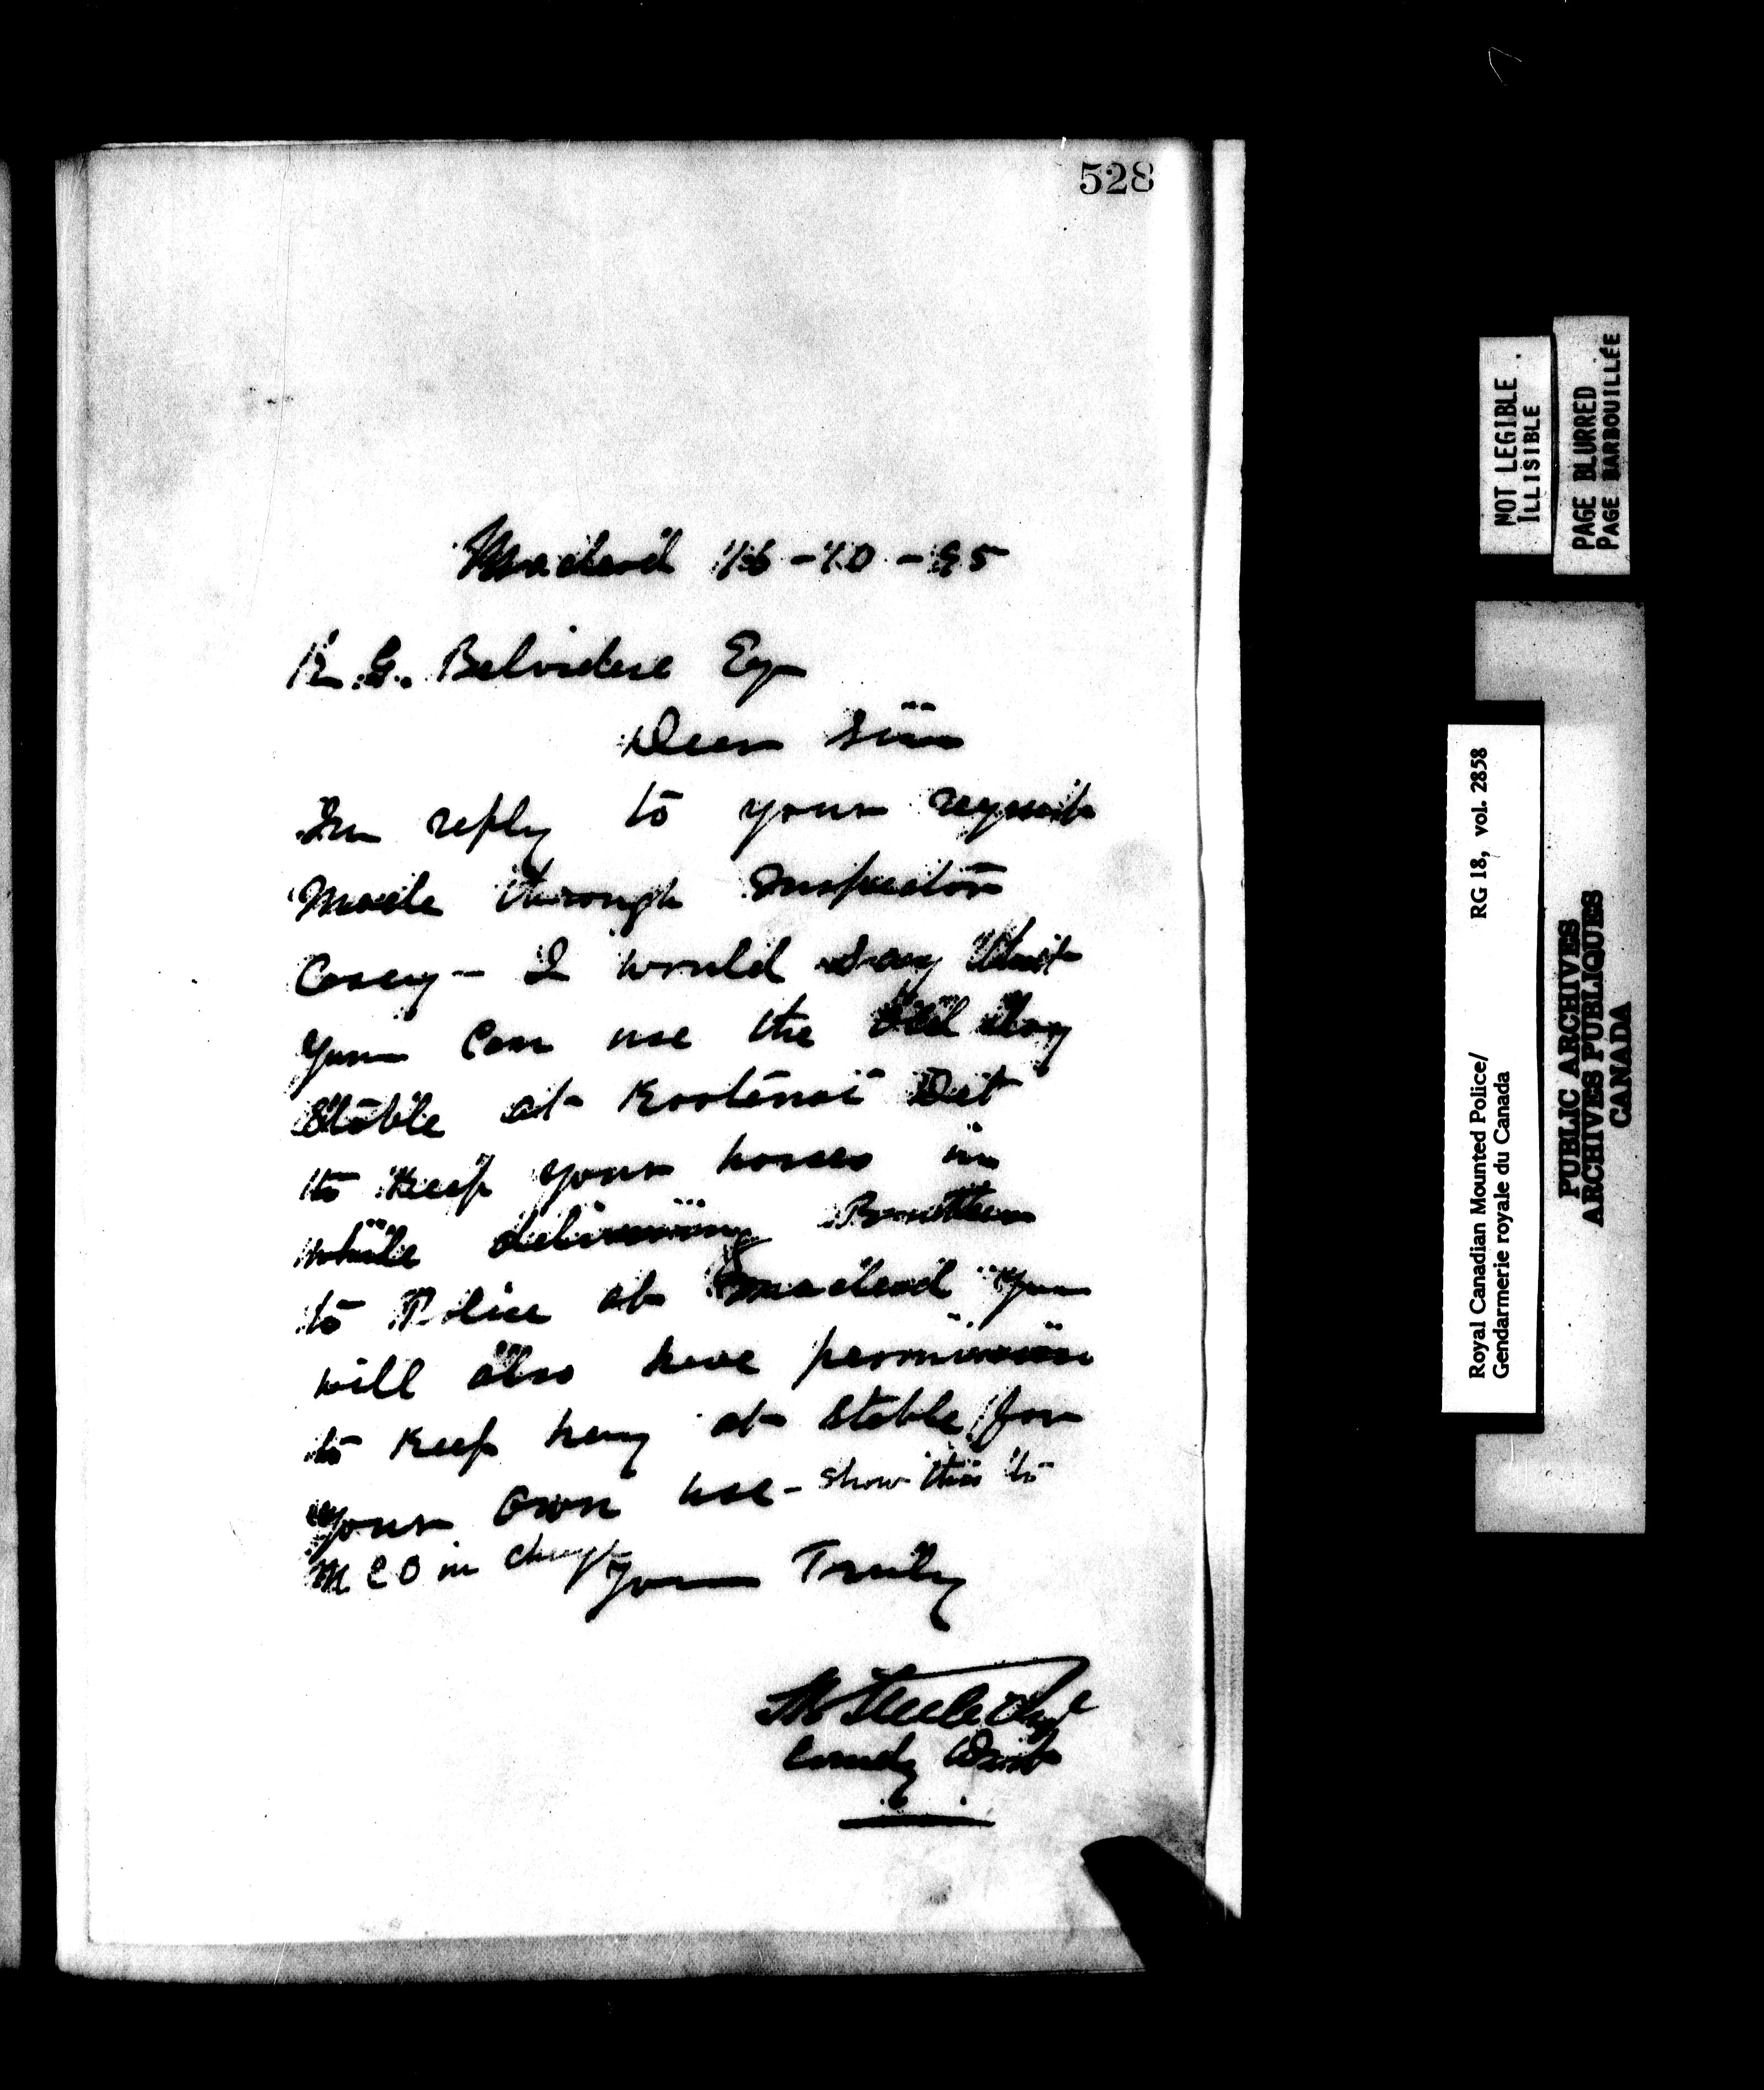 528
Macleod 16-10-95
R. G. Belvidere Esq
Dear Sir
In reply to your request
Made through Inspector
Casey - I would say that
you can use the Old Log
Stable at Kootenai Det
to keep your horses in
while delivering
to Police at Macleod you
will also have permission
to keep hay at stable for
your own use - show this to
NCO in charge
Yours Truly
Steele Supt
Comdg Dist
NOT LEGIBLE
ILLISIBLE
PAGE BLURRED
PAGE BARBOUILLÉE
Royal Canadian Mounted Police/
Gendarmerie royale du Canada
RG 18, vol. 2858
PUBLIC ARCHIVES
ARCHIVES PUBLIQUES
CANADA